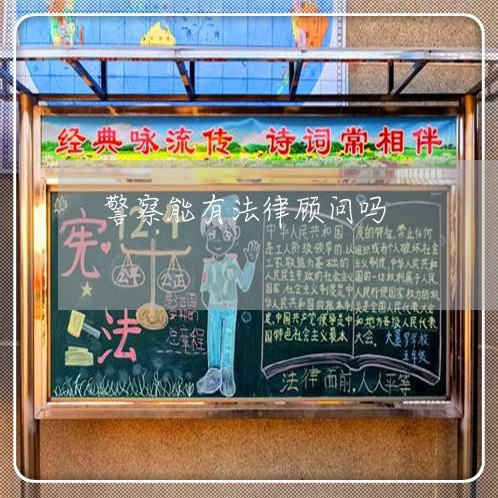 经典咏流传 诗词常相伴
警察能有法律顾问吗
宪法
12.4
公平 公正
总章程
中华人民共和国
是工人阶级领导的,以
工农联盟为基础的
人民民主专政的社会主义
国家,社会主义制度是中
华人民共和国的根本制
度,中国共产党领导是中
国特色社会主义最本
质的特征,禁止任何
组织或者个人破坏社会
主义制度,中华人民共和
国的一切权利属于人民,
人民行使国家权力的机
关是全国人民代表大会
和地方各级人民代表
大会。
五年级
法律面前,人人平等